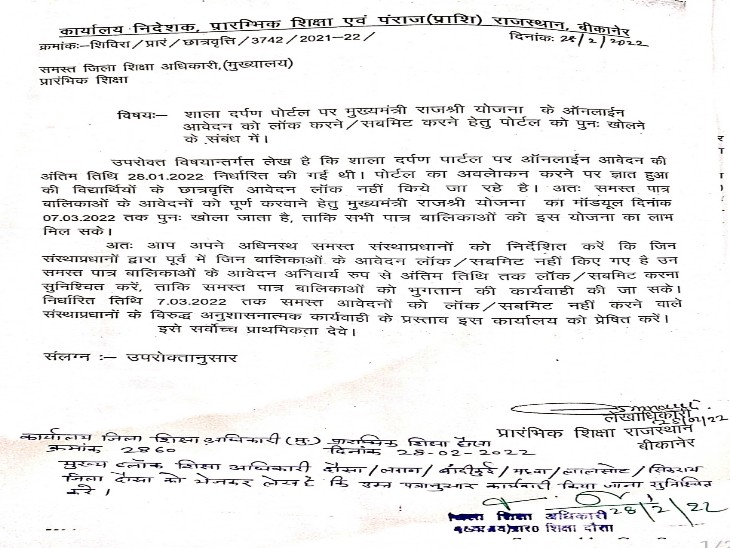 कार्यालय निदेशक, प्रारम्भिक शिक्षा एवं पंराज(प्राशि) राजस्थान, बीकानेर
क्रमांकः-शिविरा/प्रारं/छात्रवृत्ति/3742/2021-22/ दिनांकः 28/2/2022
समस्त जिला शिक्षा अधिकारी,(मुख्यालय)
प्रारंभिक शिक्षा
विषयः- शाला दर्पण पोर्टल पर मुख्यमंत्री राजश्री योजना के ऑनलाईन
आवेदन को लॉक करने/सबमिट करने हेतु पोर्टल को पुनः खोलने
के संबंध में।
उपरोक्त विषयान्तर्गत लेख है कि शाला दर्पण पार्टल पर ऑनलाईन आवेदन की
अंतिम तिथि 28.01.2022 निर्धारित की गई थी। पोर्टल का अवलोकन करने पर ज्ञात हुआ
की विद्यार्थियों के छात्रवृति आवेदन लॉक नहीं किये जा रहे है। अतः समस्त पात्र
बालिकाओं के आवेदनों को पूर्ण करवाने हेतु मुख्यमंत्री राजश्री योजना का मॉडयूल दिनांक
07.03.2022 तक पुनः खोला जाता है, ताकि सभी पात्र बालिकाओं को इस योजना का लाभ
मिल सके।
अतः आप अपने अधिनस्थ समस्त संस्थाप्रधानों को निर्देशित करें कि जिन
संस्थाप्रधानों द्वारा पूर्व में जिन बालिकाओं के आवेदन लॉक/सबमिट नहीं किए गए है उन
समस्त पात्र बालिकाओं के आवेदन अनिवार्य रुप से अंतिम तिथि तक लॉक/सबमिट करना
सुनिश्चित करें, ताकि समस्त पात्र बालिकाओं को भुगतान की कार्यवाही की जा सके।
निर्धारित तिथि 7.03.2022 तक समस्त आवेदनों को लॉक/सबमिट नहीं करने वाले
संस्थाप्रधानों के विरुद्ध अनुशासनात्मक कार्यवाही के प्रस्ताव इस कार्यालय को प्रेषित करें।
इसे सर्वोच्च प्राथमिकता देवे।
संलग्न :- उपरोक्तानुसार
लेखाधिकारी
प्रारंभिक शिक्षा राजस्थान
बीकानेर
कार्यालय जिला शिक्षा अधिकारी (मु.) प्रारम्भिक शिक्षा दौसा
क्रमांक 2860 दिनांक 28-02-2022
मुख्य ब्लॉक शिक्षा अधिकारी दौसा/लवाण/बांदीकुई/महवा/लालसोट/सिकराय
जिला दौसा को भेजकर लेख है कि उक्त पत्रानुसार कार्यवाही किया जाना सुनिश्चित
करे।
28/2/22
जिला शिक्षा अधिकारी
प्रा० शिक्षा दौसा